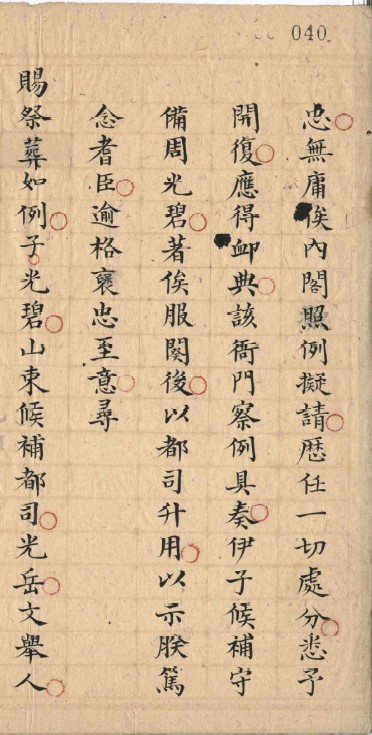 040
忠無庸俟內閣照例擬請歷任一切處分悉予
開復應得卹典該衙門察例具奏伊子候補守
備周光碧著俟服闋後以都司升用以示朕篤
念耆臣逾格褒忠至意尋
賜祭葬如例子光碧山東候補都司光岳文舉人